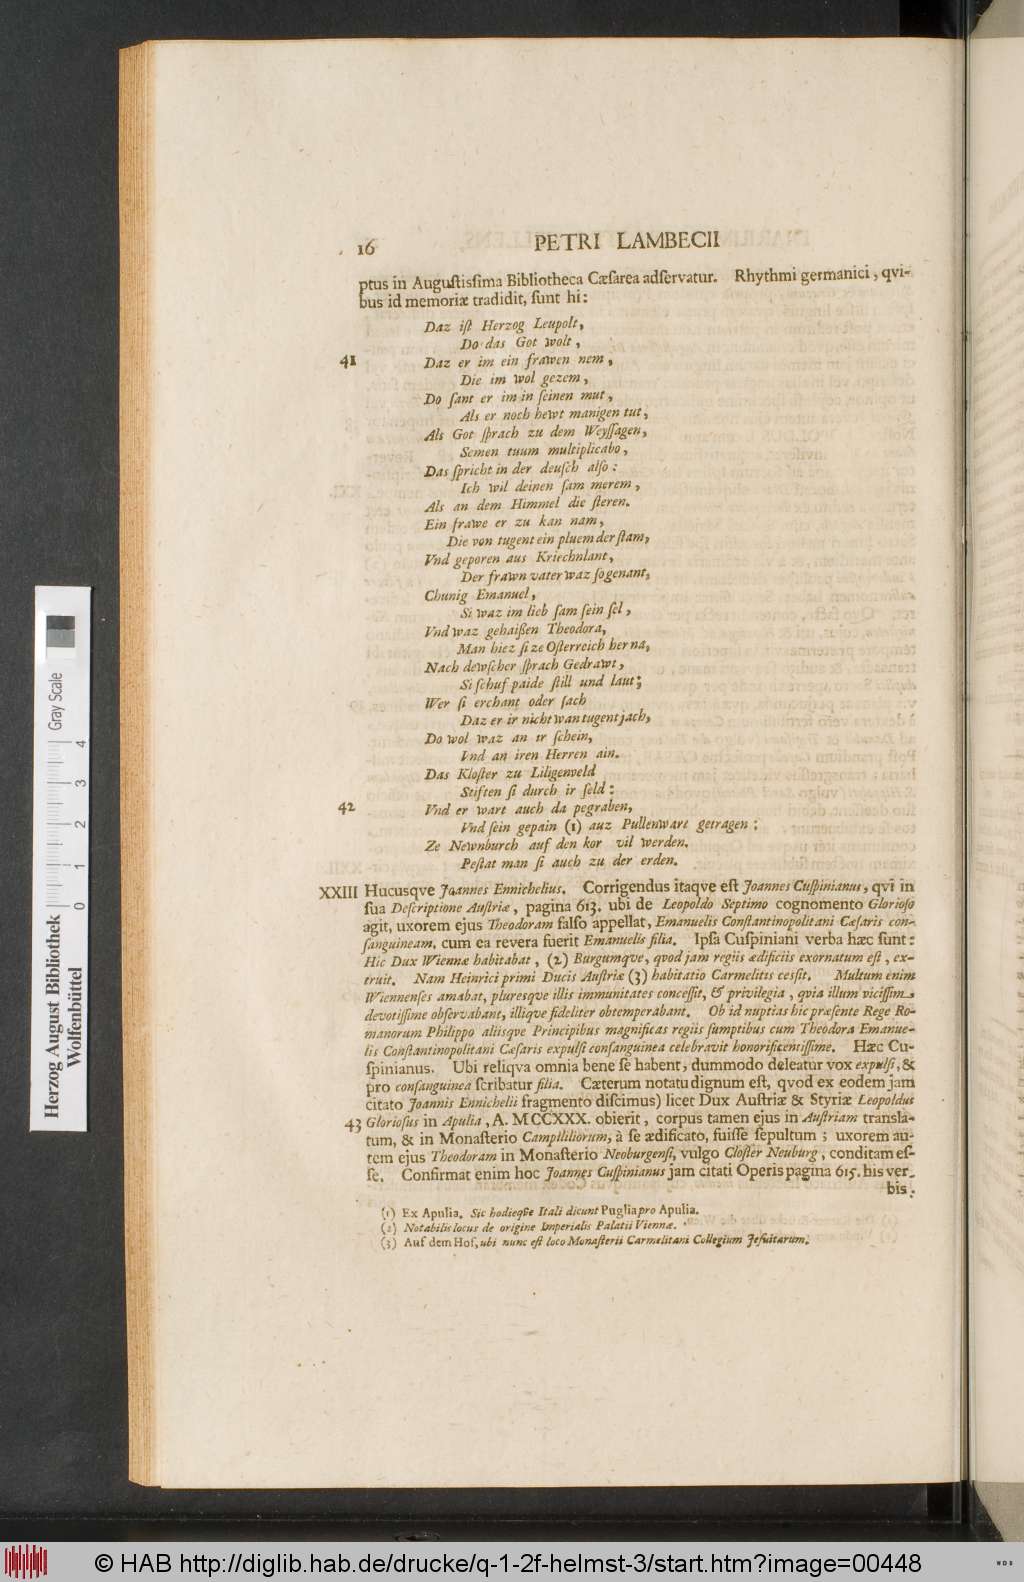 16 PETRI LAMBECII
ptus in Auguſtiſsima Bibliotheca Cæſarea adſervatur. Rhythmi germanici, qvi-
bus id memoriæ tradidit, ſunt hi:
Daz iſt Herzog Leupolt,
Do das Got wolt,
41 Daz er im ein frawen nem,
Die im wol gezem,
Do ſant er im in ſeinen mut,
Als er noch hewt manigen tut,
Als Got ſprach zu dem Weyſſagen,
Semen tuum multiplicabo,
Das ſpricht in der deuſch alſo:
Ich wil deinen ſam merem,
Als an dem Himmel die ſteren.
Ein frawe er zu kan nam,
Die von tugent ein pluem der ſtam,
Vnd geporen aus Kriechnlant,
Der frawn vater waz ſogenant,
Chunig Emanuel,
Si waz im lieb ſam ſein ſel,
Vnd waz gehaißen Theodora,
Man hiez ſi ze Oſterreich her na,
Nach dewſcher ſprach Gedrawt,
Si ſchuf paide ſtill und laut;
Wer ſi erchant oder ſach
Daz er ir nicht wan tugent jach,
Do wol waz an ir ſchein,
Vnd an iren Herren ain.
Das Kloſter zu Liligenveld
Stiften ſi durch ir ſeld:
42 Vnd er wart auch da pegraben,
Vnd ſein gepain (1) auz Pullenwart getragen:
Ze Newnburch auf den kor vil werden.
Peſtat man ſi auch zu der erden.
XXIII Hucusqve Joannes Ennichelius. Corrigendus itaqve eſt Joannes Cuſpinianus, qvi in
ſua Deſcriptione Auſtriæ, pagina 613. ubi de Leopoldo Septimo cognomento Glorioſo
agit, uxorem ejus Theodoram falſo appellat, Emanuelis Conſtantinopolitani Cæſaris con-
ſanguineam, cum ea revera fuerit Emanuelis filia. Ipſa Cuſpiniani verba hæc ſunt:
Hic Dux Wiennæ habitabat, (2) Burgumqve, qvod jam regiis ædificiis exornatum eſt, ex-
truit. Nam Heinrici primi Ducis Auſtriæ (3) habitatio Carmelitis ceſſit. Multum enim
Wiennenſes amabat, pluresqve illis immunitates conceſſit, & privilegia, qvia illum viciſſim,
devotiſſime obſervabant, illiqve fideliter obtemperabant. Ob id nuptias hic præſente Rege Ro-
manorum Philippo aliisqve Principibus magnificas regiis ſumptibus cum Theodora Emanue-
lis Conſtantinopolitani Cæſaris expulſi conſanguinea celebravit honorificentiſſime. Hæc Cu-
ſpinianus. Ubi reliqva omnia bene ſe habent, dummodo deleatur vox expulſi, &
pro conſanguinea ſcribatur filia. Cæterum notatu dignum eſt, qvod ex eodem jam
citato Joannis Ennichelii fragmento diſcimus) licet Dux Auſtriæ & Styriæ Leopoldus
43 Glorioſus in Apulia, A. MCCXXX. obierit, corpus tamen ejus in Auſtriam transla-
tum, & in Monaſterio Campililiorum, à ſe ædificato, fuiſſe ſepultum; uxorem au-
tem ejus Theodoram in Monaſterio Neoburgenſi, vulgo Cloſter Neuburg, conditam eſ-
ſe. Confirmat enim hoc Joannes Cuſpinianus jam citati Operis pagina 615. his ver-
bis:
(1) Ex Apulia. Sic hodieqve Itali dicunt Puglia pro Apulia.
(2) Notabilis locus de origine Imperialis Palatii Viennæ.
(3) Auf dem Hof, ubi nunc eſt loco Monaſterii Carmelitani Collegium Jeſuitarum.
Herzog August Bibliothek
Wolfenbüttel
Gray Scale
0 1 2 3 4
© HAB http://diglib.hab.de/drucke/q-1-2f-helmst-3/start.htm?image=00448